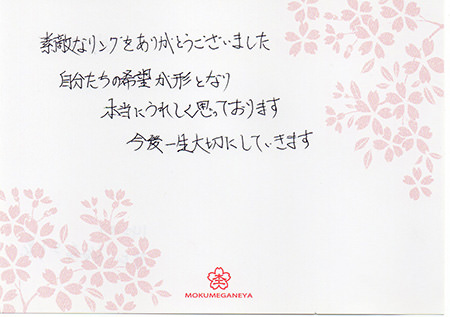 素敵なリングをありがとうございました
自分たちの希望が形となり
本当にうれしく思っております
今後一生大切にしていきます
MOKUMEGANEYA